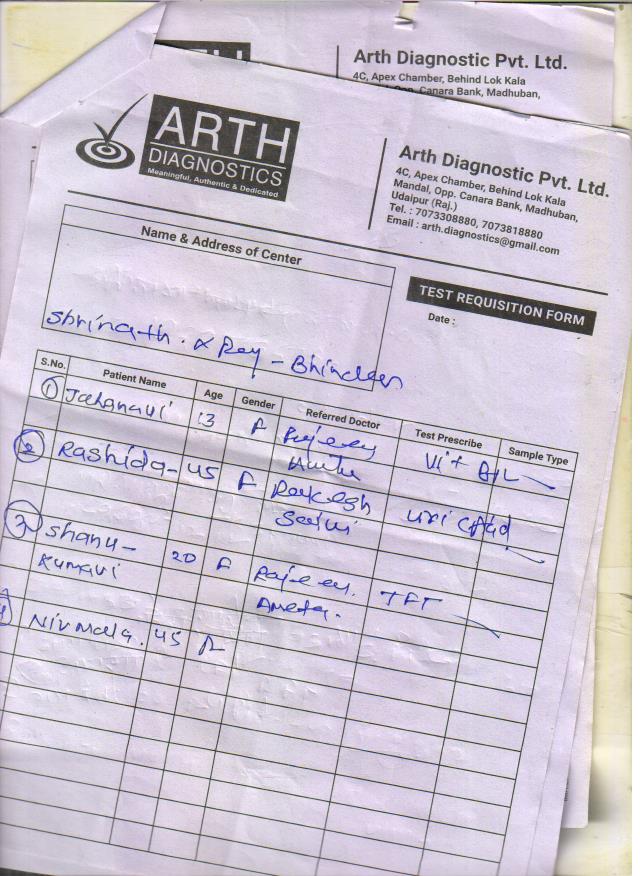 Arth Diagnostic Pvt. Ltd.
4C, Apex Chamber, Behind Lok Kala
Canara Bank, Madhuban,
ARTH
DIAGNOSTICS
Meaningful, Authentic & Dedicated
Arth Diagnostic Pvt. Ltd.
4C, Apex Chamber, Behind Lok Kala
Mandal, Opp. Canara Bank, Madhuban,
Udaipur (Raj.)
Tel. : 7073308880, 7073818880
Email : arth.diagnostics@gmail.com
Name & Address of Center
TEST REQUISITION FORM
Date :
Shrinath . X Ray - Bhinder
S.No. Patient Name Age Gender Referred Doctor Test Prescribe Sample Type
1 Jahanavi 13 F Vit B12
2 Rashida - 45 F Rakesh uric
3 Shanu - 20 F Rajeev. TFT
Kumavi Ameta.
4 Nirmala . 45 F